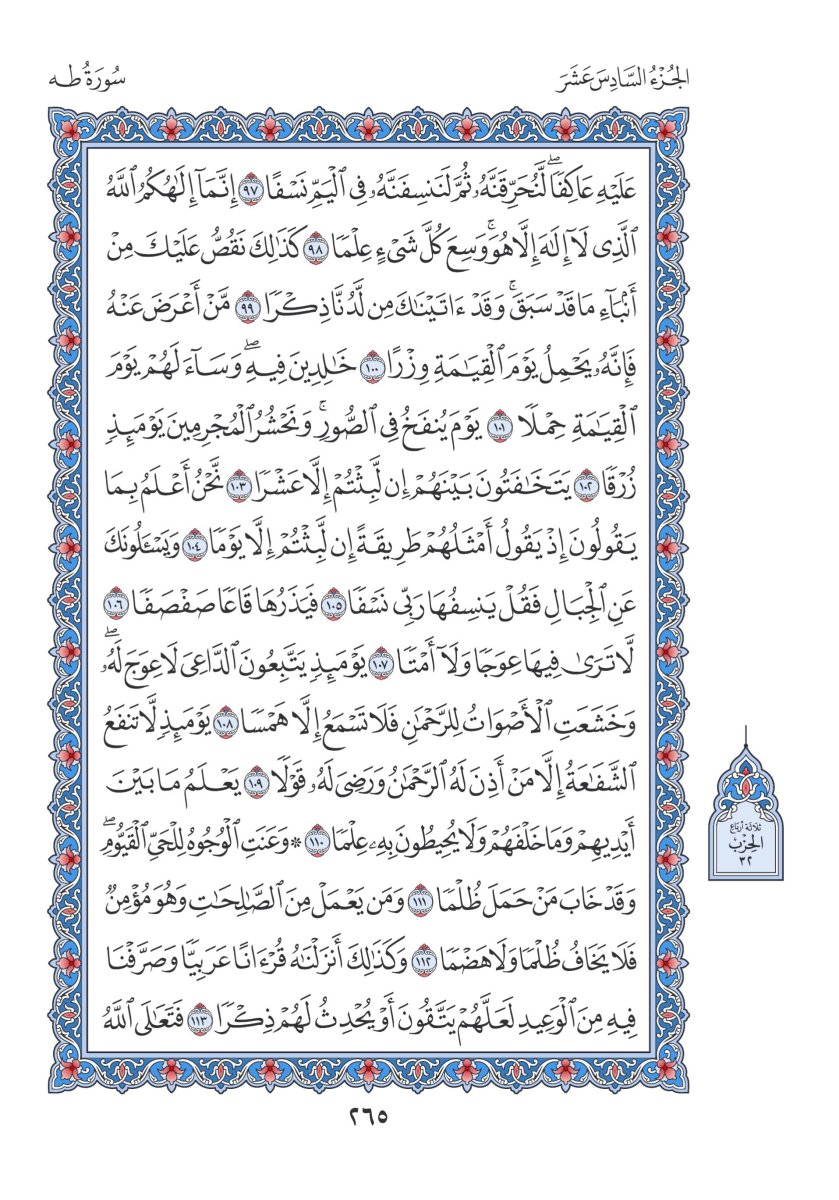 الجُزْءُ السَّادِسَ عَشَرَ
سُورَةُ طه
عَلَيْهِ عَاكِفٗاۖ لَّنُحَرِّقَنَّهُۥ ثُمَّ لَنَنسِفَنَّهُۥ فِى ٱلْيَمِّ نَسْفًا ٩٧ إِنَّمَآ إِلَٰهُكُمُ ٱللَّهُ
ٱلَّذِى لَآ إِلَٰهَ إِلَّا هُوَۚ وَسِعَ كُلَّ شَىْءٍ عِلْمٗا ٩٨ كَذَٰلِكَ نَقُصُّ عَلَيْكَ مِنْ
أَنۢبَآءِ مَا قَدْ سَبَقَۚ وَقَدْ ءَاتَيْنَٰكَ مِن لَّدُنَّا ذِكْرٗا ٩٩ مَّنْ أَعْرَضَ عَنْهُ
فَإِنَّهُۥ يَحْمِلُ يَوْمَ ٱلْقِيَٰمَةِ وِزْرًا ١٠٠ خَٰلِدِينَ فِيهِۖ وَسَآءَ لَهُمْ يَوْمَ
ٱلْقِيَٰمَةِ حِمْلٗا ١٠١ يَوْمَ يُنفَخُ فِى ٱلصُّورِۚ وَنَحْشُرُ ٱلْمُجْرِمِينَ يَوْمَئِذٖ
زُرْقٗا ١٠٢ يَتَخَٰفَتُونَ بَيْنَهُمْ إِن لَّبِثْتُمْ إِلَّا عَشْرٗا ١٠٣ نَّحْنُ أَعْلَمُ بِمَا
يَقُولُونَ إِذْ يَقُولُ أَمْثَلُهُمْ طَرِيقَةً إِن لَّبِثْتُمْ إِلَّا يَوْمٗا ١٠٤ وَيَسْـَٔلُونَكَ
عَنِ ٱلْجِبَالِ فَقُلْ يَنسِفُهَا رَبِّى نَسْفٗا ١٠٥ فَيَذَرُهَا قَاعٗا صَفْصَفٗا ١٠٦
لَّا تَرَىٰ فِيهَا عِوَجٗا وَلَآ أَمْتٗا ١٠٧ يَوْمَئِذٖ يَتَّبِعُونَ ٱلدَّاعِىَ لَا عِوَجَ لَهُۥۖ
وَخَشَعَتِ ٱلْأَصْوَاتُ لِلرَّحْمَٰنِ فَلَا تَسْمَعُ إِلَّا هَمْسٗا ١٠٨ يَوْمَئِذٖ لَّا تَنفَعُ
ٱلشَّفَٰعَةُ إِلَّا مَنْ أَذِنَ لَهُ ٱلرَّحْمَٰنُ وَرَضِىَ لَهُۥ قَوْلٗا ١٠٩ يَعْلَمُ مَا بَيْنَ
أَيْدِيهِمْ وَمَا خَلْفَهُمْ وَلَا يُحِيطُونَ بِهِۦ عِلْمٗا ١١٠ ۞ وَعَنَتِ ٱلْوُجُوهُ لِلْحَىِّ ٱلْقَيُّومِۖ
وَقَدْ خَابَ مَنْ حَمَلَ ظُلْمٗا ١١١ وَمَن يَعْمَلْ مِنَ ٱلصَّٰلِحَٰتِ وَهُوَ مُؤْمِنٌ
فَلَا يَخَافُ ظُلْمٗا وَلَا هَضْمٗا ١١٢ وَكَذَٰلِكَ أَنزَلْنَٰهُ قُرْءَانًا عَرَبِيّٗا وَصَرَّفْنَا
فِيهِ مِنَ ٱلْوَعِيدِ لَعَلَّهُمْ يَتَّقُونَ أَوْ يُحْدِثُ لَهُمْ ذِكْرٗا ١١٣ فَتَعَٰلَى ٱللَّهُ
ثلاثة أرباع
الحِزْب
٣٢
٢٦٥